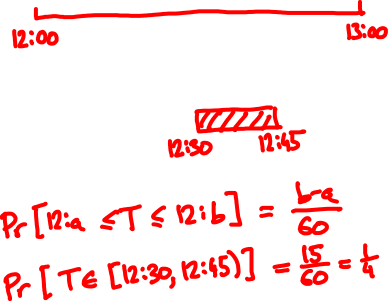 12:00 13:00
12:30 12:45
Pr[12:a ≤ T ≤ 12:b] = b-a/60
Pr[T∈[12:30,12:45)] = 15/60 = 1/4